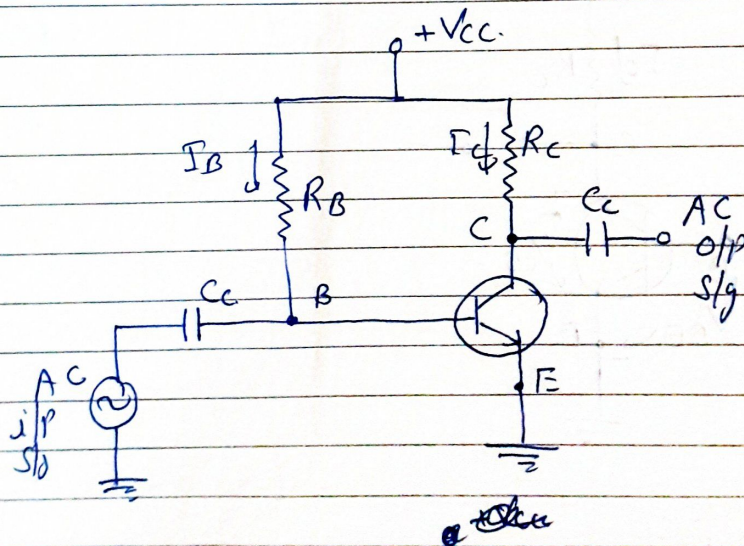 +VCC.
IB
RB
IC
RC
CC
AC
O/P
S/g
C
CC
B
AC
i/P
S/g
E